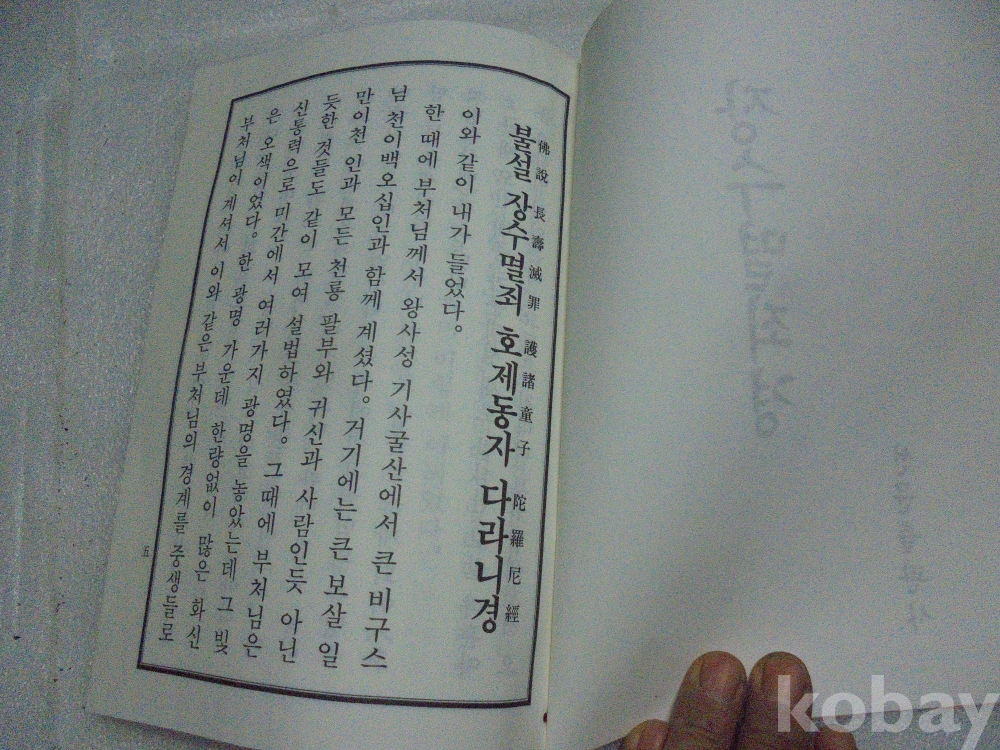 불설 장수멸죄 호제동자 다라니경
佛說 長壽滅罪 護諸童子 陀羅尼經
이와 같이 내가 들었다.
한 때에 부처님께서 왕사성 기사굴산에서 큰 비구스
님 천이백오십인과 함께 계셨다. 거기에는 큰 보살 일
만이천 인과 모든 천룡 팔부와 귀신과 사람인듯 아닌
듯한 것들도 같이 모여 설법하였다. 그 때에 부처님은
신통력으로 미간에서 여러가지 광명을 놓았는데 그 빛
은 오색이었다. 한 광명 가운데 한량없이 많은 화신
부처님이 계셔서 이와 같은 부처님의 경계를 중생들로
五
kobay